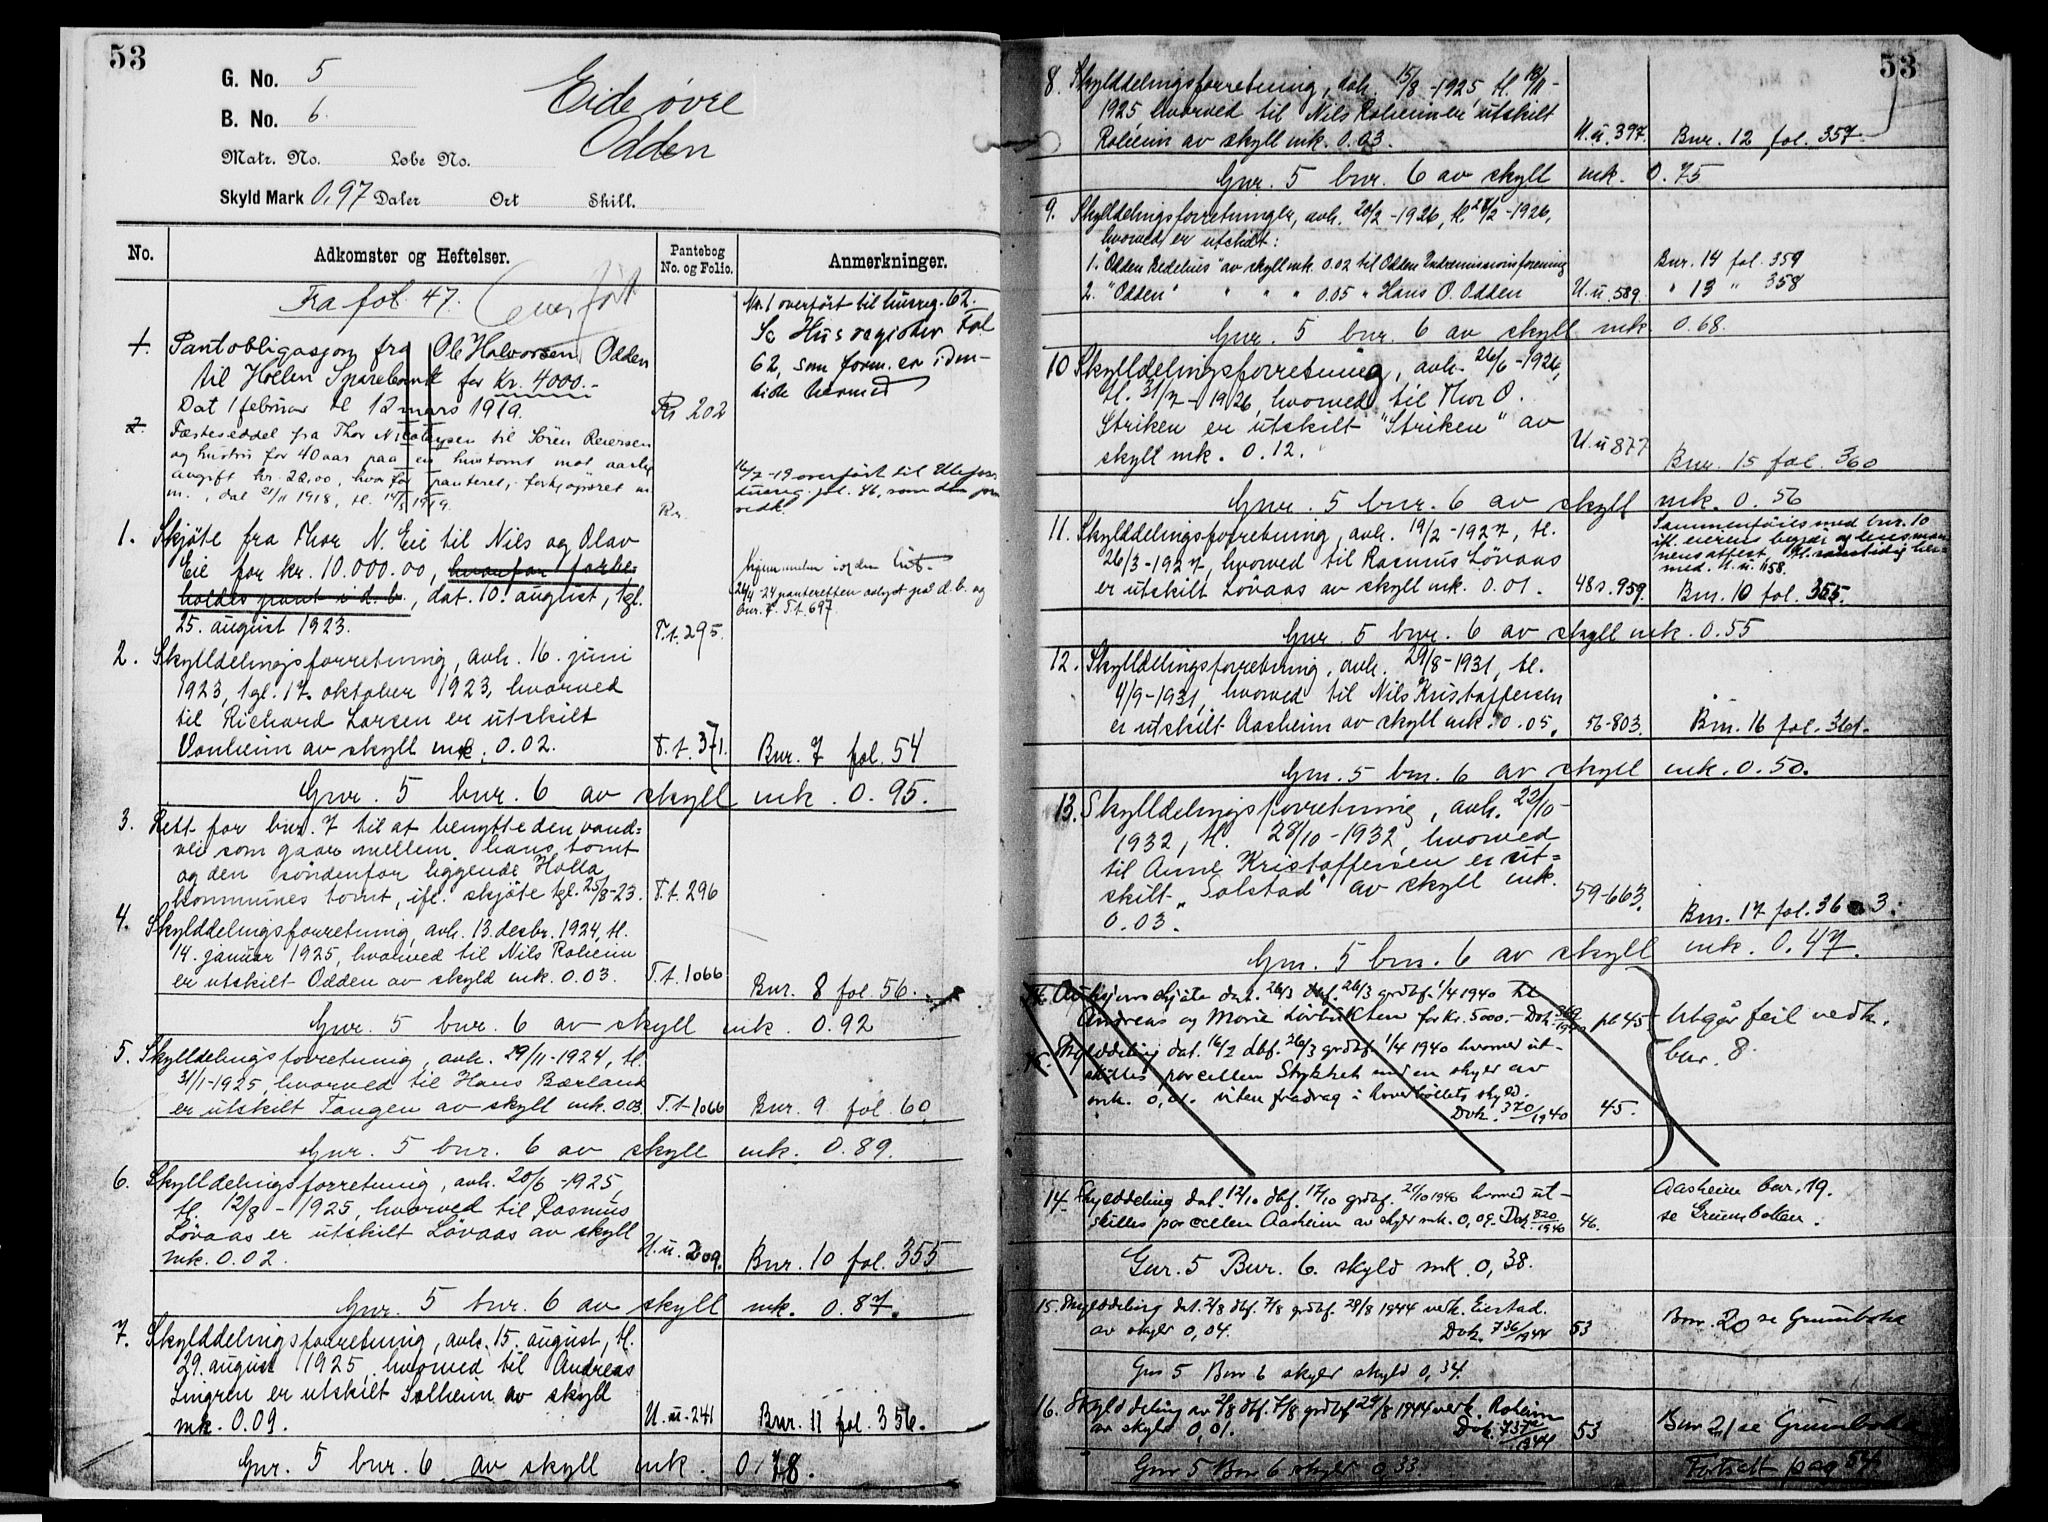 53
G. No. 5
B. No. 6
Eide øvre
Odden
Matr. No. Løbe No.
Skyld Mark 0,97 Daler Ort Skill.
No. Adkomster og Heftelser. Pantebog No. og Folio. Anmerkninger.
Fra fol. 47. Overført
Nr. 1 overført til husreg. 62.
Se Husregister Fol
62, som form. er iden-
tisk hermed
1. Pantobligasjon fra Ole Halvorsen Odden
til Hollen Sparebank for Kr. 4000.-
Dat 1 februar tl 12 mars 1919. Rr 202
2. Fæsteseddel fra Thor Nicolaysen til Sören Reiersen
og hustru for 40 aar paa en hustomt mot aarlig
avgift kr. 20,00, hvorfor panteret, forkjøpsret m
m., dat 21/11 1918, tl. 14/5 1919. Rr.
16/7-19 overført til
husreg. fol. 46, som den
vedk.
1. Skjöte fra Thor N. Eie til Nils og Olav
Eie for kr. 10.000.00, hvorfor forbe-
holdes pant i d. b., dat. 10. august, tgl.
25. august 1923. T.t. 295.
Hjemmelen i orden
24/4-24 panteretten avlyst på d.b. og
bnr. 7. T.t. 697
2. Skylldelingsforretning, avh. 16. juni
1923, tgl. 17. oktober 1923, hvorved
til Richard Larsen er utskilt
Vonheim av skyll mk. 0.02. T.t. 371. Bnr. 7 fol. 54
Gnr. 5 bnr. 6 av skyll mk. 0.95.
3. Rett for bnr. 7 til at benytte den vand=
vei som gaar mellem hans tomt
og den söndenfor liggende Holla
kommunes tomt, ifl. skjöte tgl. 25/8-23. T.t. 296
4. Skylddelingsforretning, avh. 13. desbr. 1924, tl.
14. januar 1925, hvorved til Nils Roheim
er utskilt Odden av skyld mk. 0.03. T.t. 1066 Bnr. 8 fol. 56.
Gnr. 5 bnr. 6 av skyll mk. 0.92
5. Skylldelingsforretning, avh. 29/11-1924, tl.
31/1-1925, hvorved til Hans Bærland
er utskilt Tangen av skyll mk. 0.03. T.t 1066 Bnr. 9 fol. 60,
Gnr. 5 bnr. 6 av skyll mk. 0.89.
6. Skylldelingsforretning, avh. 20/6-1925,
tl. 12/8-1925, hvorved til Rasmus
Lövaas er utskilt Lövaas av skyll
mk. 0.02. U.u. 209. Bnr. 10 fol. 355
Gnr. 5 bnr. 6 av skyll mk. 0.87.
7. Skylddelingsforretning, avh. 15. august, tl.
29. august 1925, hvorved til Andreas
Lingren er utskilt Solheim av skyll
mk. 0.09. U.u. 241 Bnr. 11 fol. 356.
Gnr. 5 bnr. 6 av skyll mk. 0.78.
53
8. Skylddelingsforretning, avh. 15/8-1925, tl. 18/11-
1925, hvorved til Nils Roheim er utskilt
Roheim av skyll mk. 0.03. U.u. 397. Bnr. 12 fol. 357
Gnr. 5 bnr. 6 av skyll mk. 0.75
9. Skylldelingsforretninger, avh. 20/2-1926, tl 27/2-1926,
hvorved er utskilt:
1. "Odden Bedehus" av skyll mk. 0.02 til Odden Indremissionsforening Bnr. 14 fol. 359
2. "Odden" " " " 0.05 " Hans O. Odden U.u. 589. " 13 " 358
Gnr. 5 bnr. 6 av skyll mk. 0.68.
10 Skylldelingsforretning, avh. 26/6-1926,
tl. 31/7-1926, hvorved til Thor O.
Striken er utskilt "Striken" av
skyll mk. 0.12. U.u 877 Bnr. 15 fol. 360
Gnr. 5 bnr. 6 av skyll mk. 0.56
11. Skylddelingsforretning, avh. 19/2-1927, tl.
26/3-1927, hvorved til Rasmus Lövaas
er utskilt Lövaas av skyll mk. 0.01. 48s. 959. Bnr. 10 fol. 355.
Sammenföies med bnr. 10
ifl. eierens begjær og
attest, tl. samtidig her=
med. U.u. 1158.
Gnr. 5 bnr. 6 av skyll mk. 0.55
12. Skylldelingsforretning, avh. 29/8-1931, tl.
4/9-1931, hvorved til Nils Kristoffersen
er utskilt Aasheim av skyll mk. 0.05. 56-803. Bnr. 16 fol. 361.
Gnr. 5 bnr. 6 av skyll mk. 0.50.
13. Skylldelingsforretning, avh. 22/10-
1932, tl. 28/10-1932, hvorved
til Anne Kristoffersen er ut=
skilt "Solstad" av skyll mk.
0.03. 59-663. Bnr. 17 fol. 363.
Gnr. 5 bnr. 6 av skyll mk. 0.47.
14. Auksjonsskjøte dat. 26/3 dbf. 26/3 grdbf. 1/4 1940 til
Andreas og Marie Lövbukten for kr. 5000.- Dok. 369/1940 pl 45
15. Skylddeling dat. 16/2 dbf. 26/3 grdbf 1/4 1940 hvorved ut-
skilles parcellen Stykket med en skyld av
mk. 0,01. uten fradrag i hovedbølets skyld.
Dok. 370/1940 45.
Utgår feil vedk.
bnr. 8.
14. Skylddeling dat. 12/10 dbf. 17/10 grdbf. 21/10 1940 hvorved ut-
skilles parcellen Aasheim av skyld mk. 0,09. Dok. 820/1940 46.
Aasheim bnr. 19.
se Grunnboken.
Gnr. 5 Bnr. 6. skyld mk. 0,38.
15. Skylddeling dat. 2/8 dbf. 7/8 grdbf. 29/8 1944 vedk. Eiestad.
av skyld 0,04. Dok. 736/1944 53 Bnr. 20 se Grunnboka
Gnr 5 Bnr 6 skyld 0,34.
16. Skylddeling av 2/8 dbf. 7/8 grdbf 29/8 1944 vedk. Roheim
av skyld 0,01. Dok. 737/1944 53 Bnr 21 se Grunnboka
Gnr 5 Bnr 6 skyld 0,33. Fortsatt pag 54